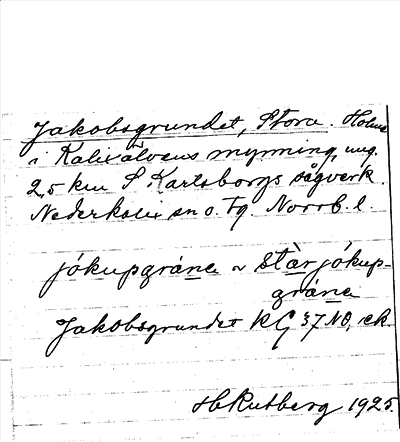 Jakobsgrundet, Stora. Holme
i Kalixälvens mynning, ung.
2,5 km S Karlsborgs sågverk.
Nederkalix sn o. tg. Norrb. l.
jókupgráne ~ stàrjókup-
gráne
Jakobsgrundet KG 37 NO, ek.
HRutberg 1925.